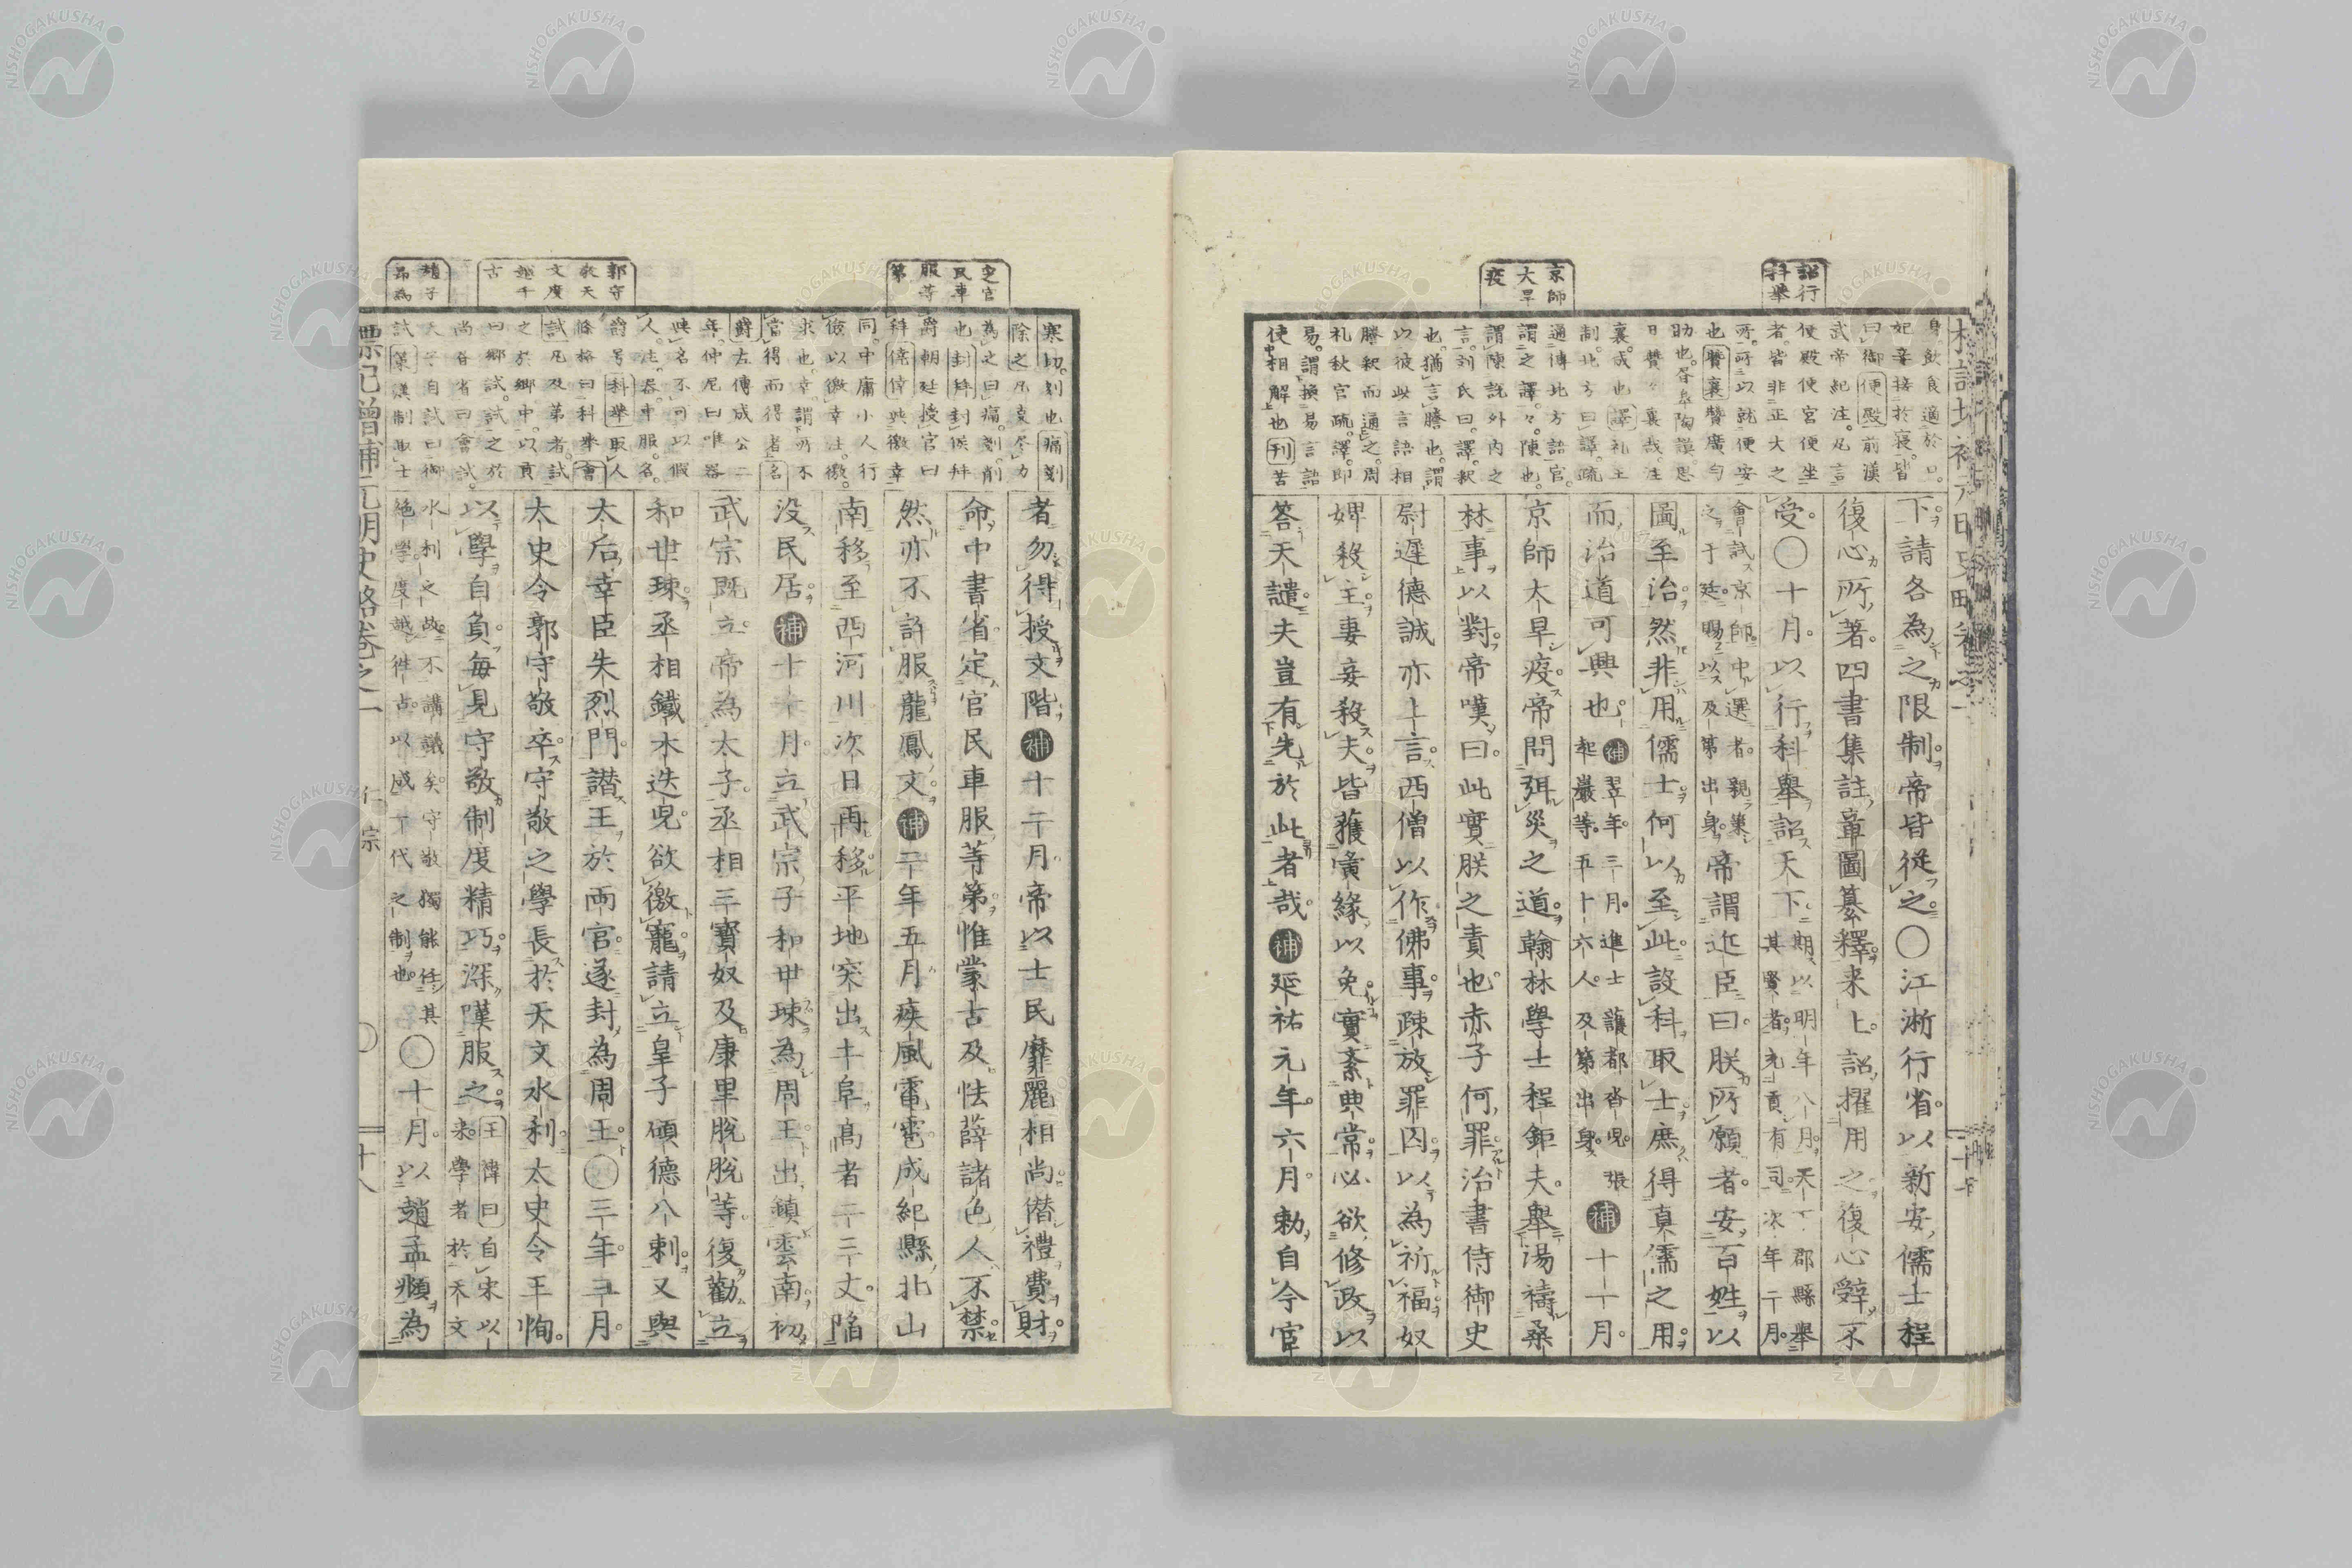 詔行
科舉
京師
大旱
疫
身飲食適於口
妃妾接於寢皆
曰御便殿前漢
武帝紀注凡言
便殿便宮便坐
者皆非正大之
所可以就便安
也贊襄贊廣勻
助也虞皋陶謨思
日贊贊襄哉注
襄成也譯禮王
制北方曰譯疏
通傳北方語官
謂之譯譯陳也
謂陳說外內之
言劉氏曰譯釋
也猶言謄也謂
以彼此言語相
謄釋而通之周
禮秋官疏譯即
易謂換易言語
使相解也刊苦
下請各為之限制帝皆從之〇江淅行省以新安儒士程
復心所著四書集註章圖纂釋來上詔擢用之復心辭不
受〇十月以行科舉詔天下期以明年八月天下郡縣舉
其賢者充貢有司次年二月
會試京師中選者親策
之于廷賜以及第出身帝謂近臣曰朕所願者安百姓以
圖至治然非用儒士何以至此設科取士庶得真儒之用
而治道可興也補翌年三月進士護都沓兒張
起巖等五十六人及第出身補十一月
京師大旱疫帝問弭災之道翰林學士程鉅夫舉湯禱桑
林事以對帝嘆曰此實朕之責也赤子何罪治書侍御史
尉遲德誠亦上言西僧以作佛事疎放罪囚以為祈福奴
婢殺主妻妾殺夫皆獲夤緣以免實紊典常必欲修政以
答天譴夫豈有先於此者哉補延祐元年六月勅自今宦
定官
民車
服等
第
郭守
敬天
文度
越千
古
趙子
昂為
寒切刻也痛刻
除之凡造登力
為之曰痛刻削
也封拜封侯拜
爵朝廷授官曰
拜僥倖與徼幸
同中庸小人行
險以徼幸注徼
求也幸謂所不
當得而得者名
爵左傳成公二
年仲尼曰唯器
與名不可以假
人注器車服名
爵號科舉取人
條格曰科舉會
試凡及第者試
之於鄉中以貢
曰鄉試試之於
尚書省曰會試
天子自試曰御
試策漢制取士
者勿得授文階補十二月帝以士民靡麗相尚僣禮費財
命中書省定官民車服等第惟蒙古及怯薛諸色人不禁
然亦不許服龍鳳文補二年五月疾風電雹成紀縣北山
南移至西河川次日再移平地突出土阜高者二三丈陷
没民居補十一月立武宗子和世㻋為周王出鎮雲南初
武宗既立帝為太子丞相三寶奴及康里脫脫等復勸立
和世㻋丞相鐵木迭兒欲徼寵請立皇子碩德八剌又與
太后幸臣失烈門譖王於兩宮遂封為周王〇三年三月
太史令郭守敬卒守敬之學長於天文水利太史令王恂
以學自負每見守敬制度精巧深嘆服之王褘曰自宋以
來學者於天文
水利之故不講議矣守敬獨能任其
絕學度越往古以成一代之制也〇十月以趙孟頫為
標記增補元明史略卷之一 仁宗 〇 十八